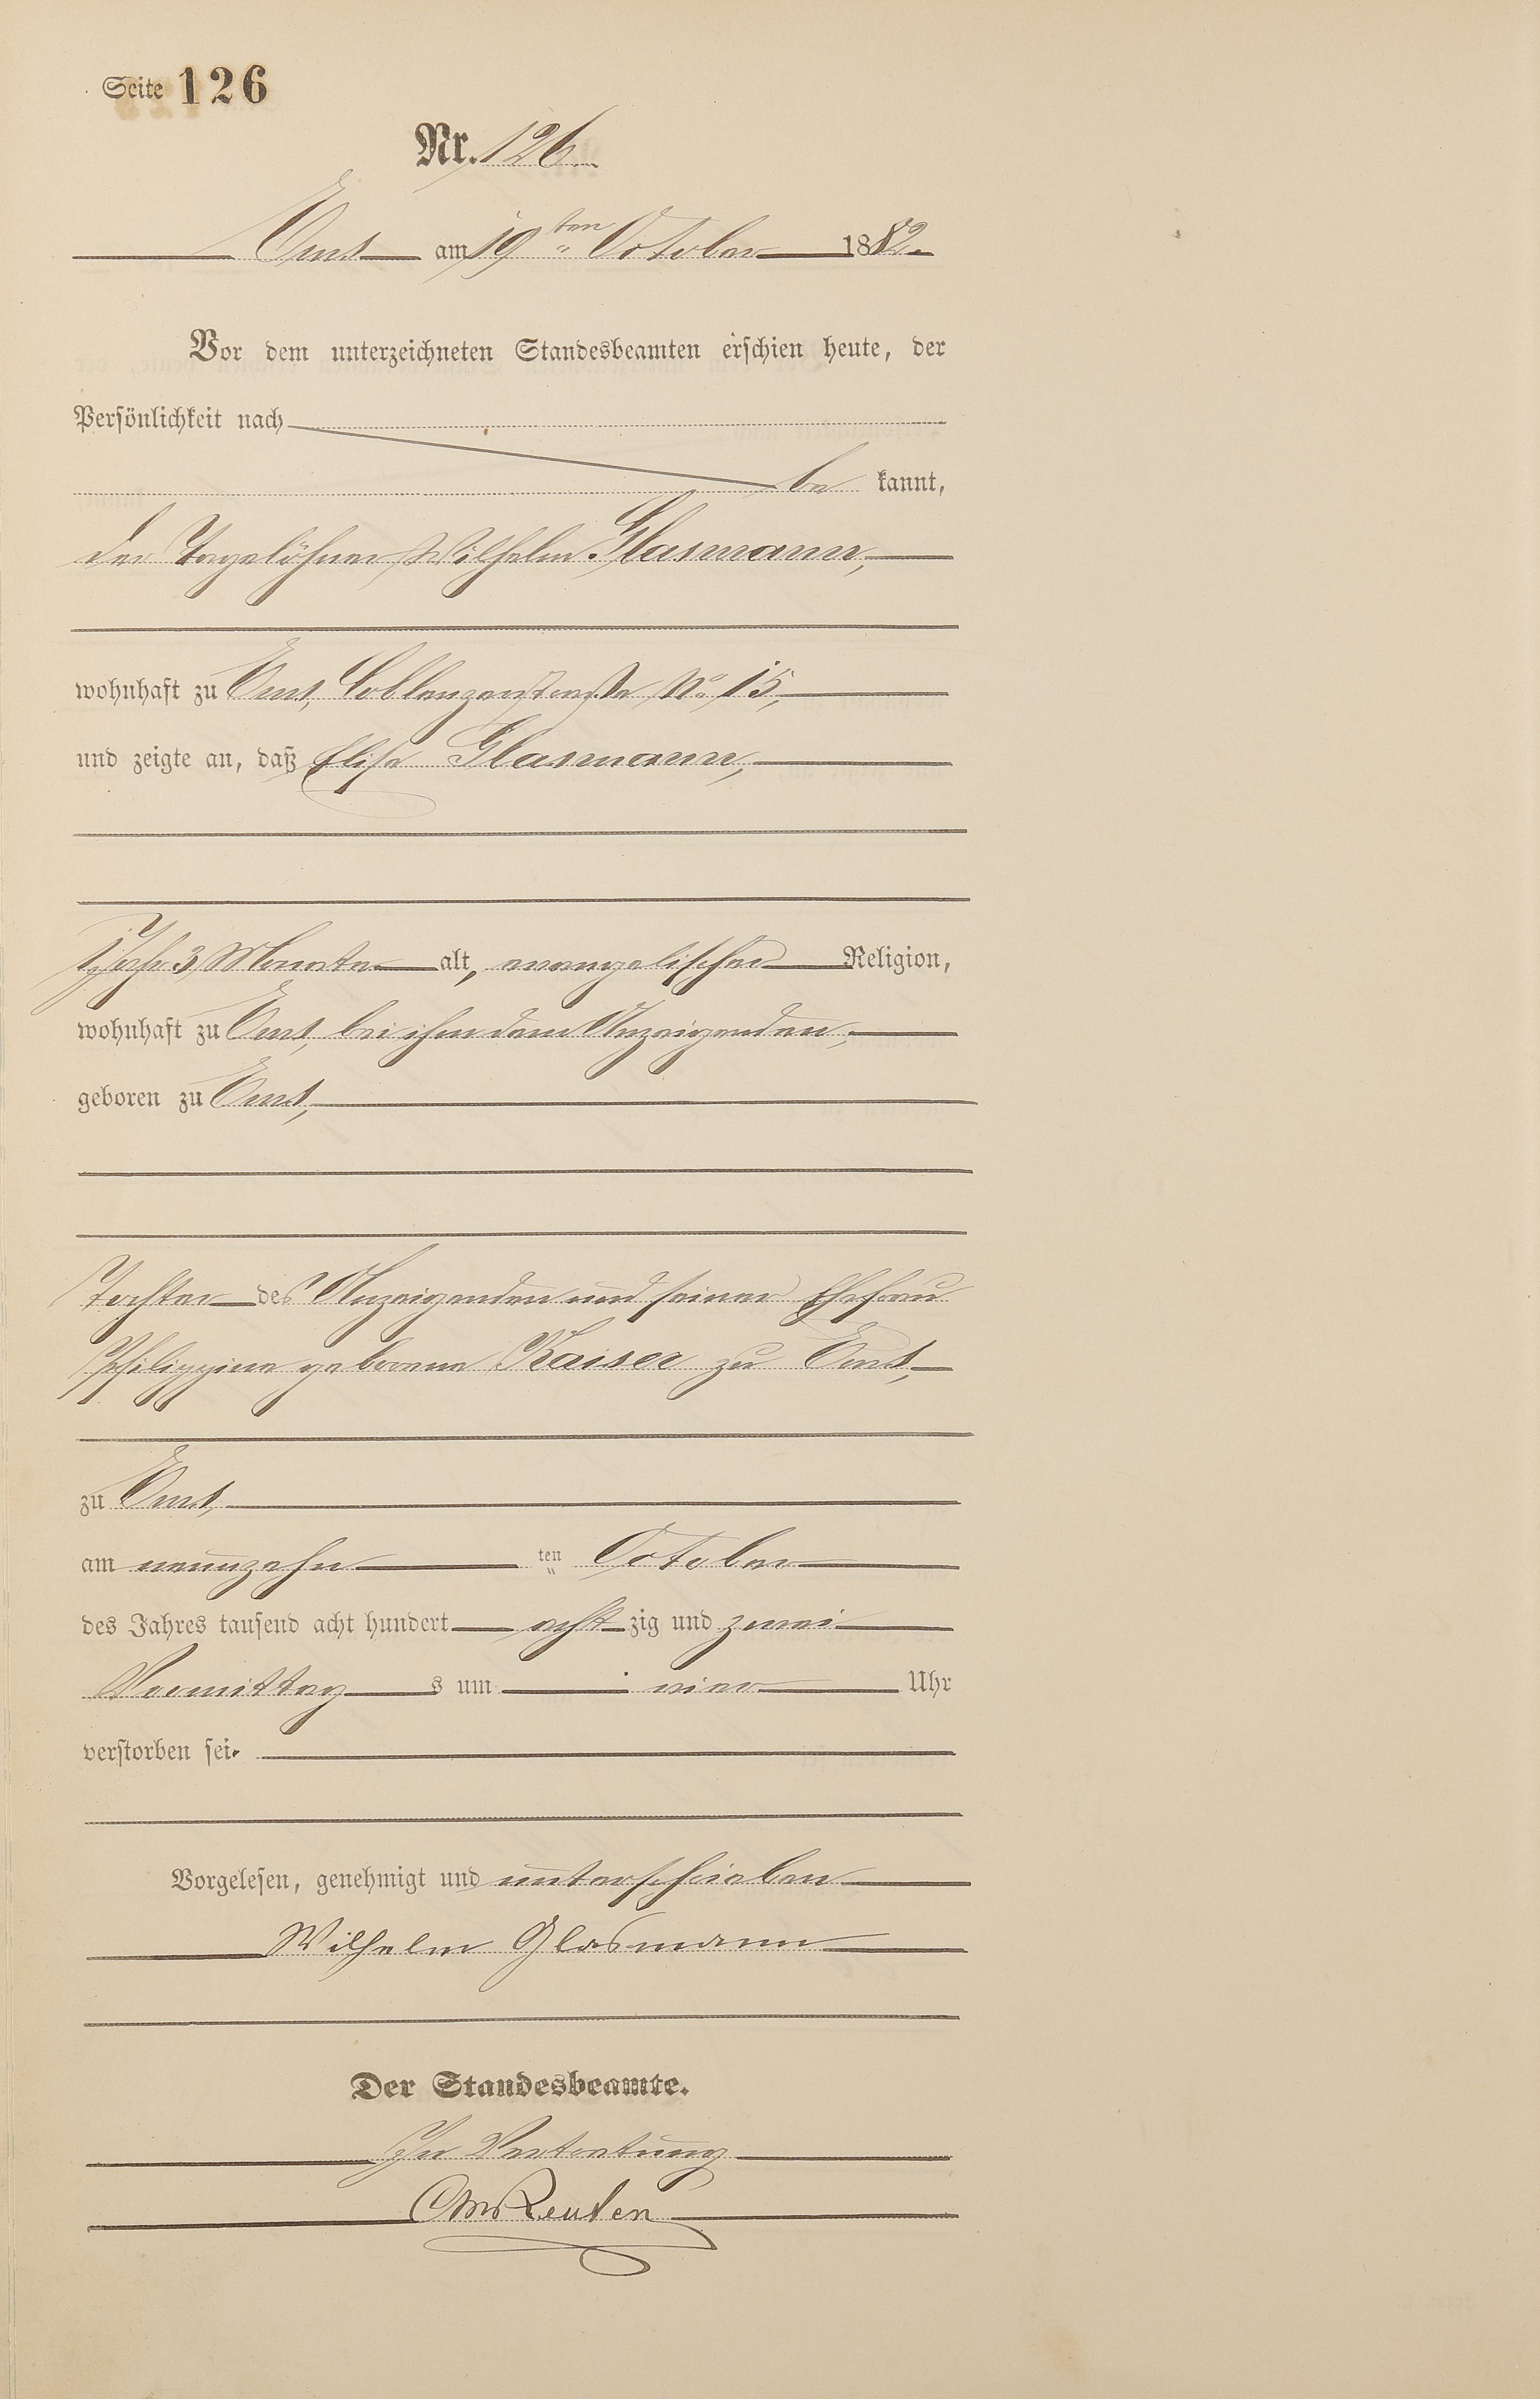 Seite 126
Nr. 126.
Ems am 19ten October 1882.
Vor dem unterzeichneten Standesbeamten erschien heute, der
Persönlichkeit nach
be kannt,
der Tagelöhner Wilhelm Glasmann,
wohnhaft zu Ems, Coblenzerstraße No 15,
und zeigte an, daß Elise Glasmann,
1 Jahr 3 Monate alt, evangelischer Religion,
wohnhaft zu Ems, bei ihm dem Anzeigenden,
geboren zu Ems,
Tochter des Anzeigenden und seiner Ehefrau
Philippine geborene Kaiser zu Ems,
zu Ems,
am neunzehn ten October
des Jahres tausend acht hundert acht zig und zwei
Vormittag s um vier Uhr
verstorben sei.
Vorgelesen, genehmigt und unterschrieben
Wilhelm Glasmann
Der Standesbeamte.
In Vertretung
Reuten